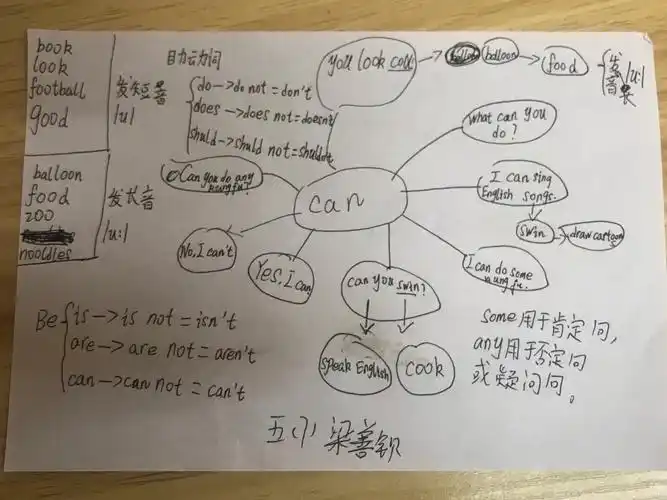 book
look
football
good
发短音
/u/
balloon
food
zoo
nooldles
发长音
/u:/
助动词
do → do not = don't
does → does not = doesn't
shuld → shuld not =
you look cool → balloon → food
发音是 /u:/
can
What can you
do?
I can sing
English songs.
swin → draw cartoon
I can do some
kung fu.
can you swin?
speak English
cook
Yes, I can
No, I can't
Can you do any
kung fu?
Be
is → is not = isn't
are → are not = aren't
can → can not = can't
some 用于肯定问,
any 用于否定问
或疑问问。
五(1) 梁善